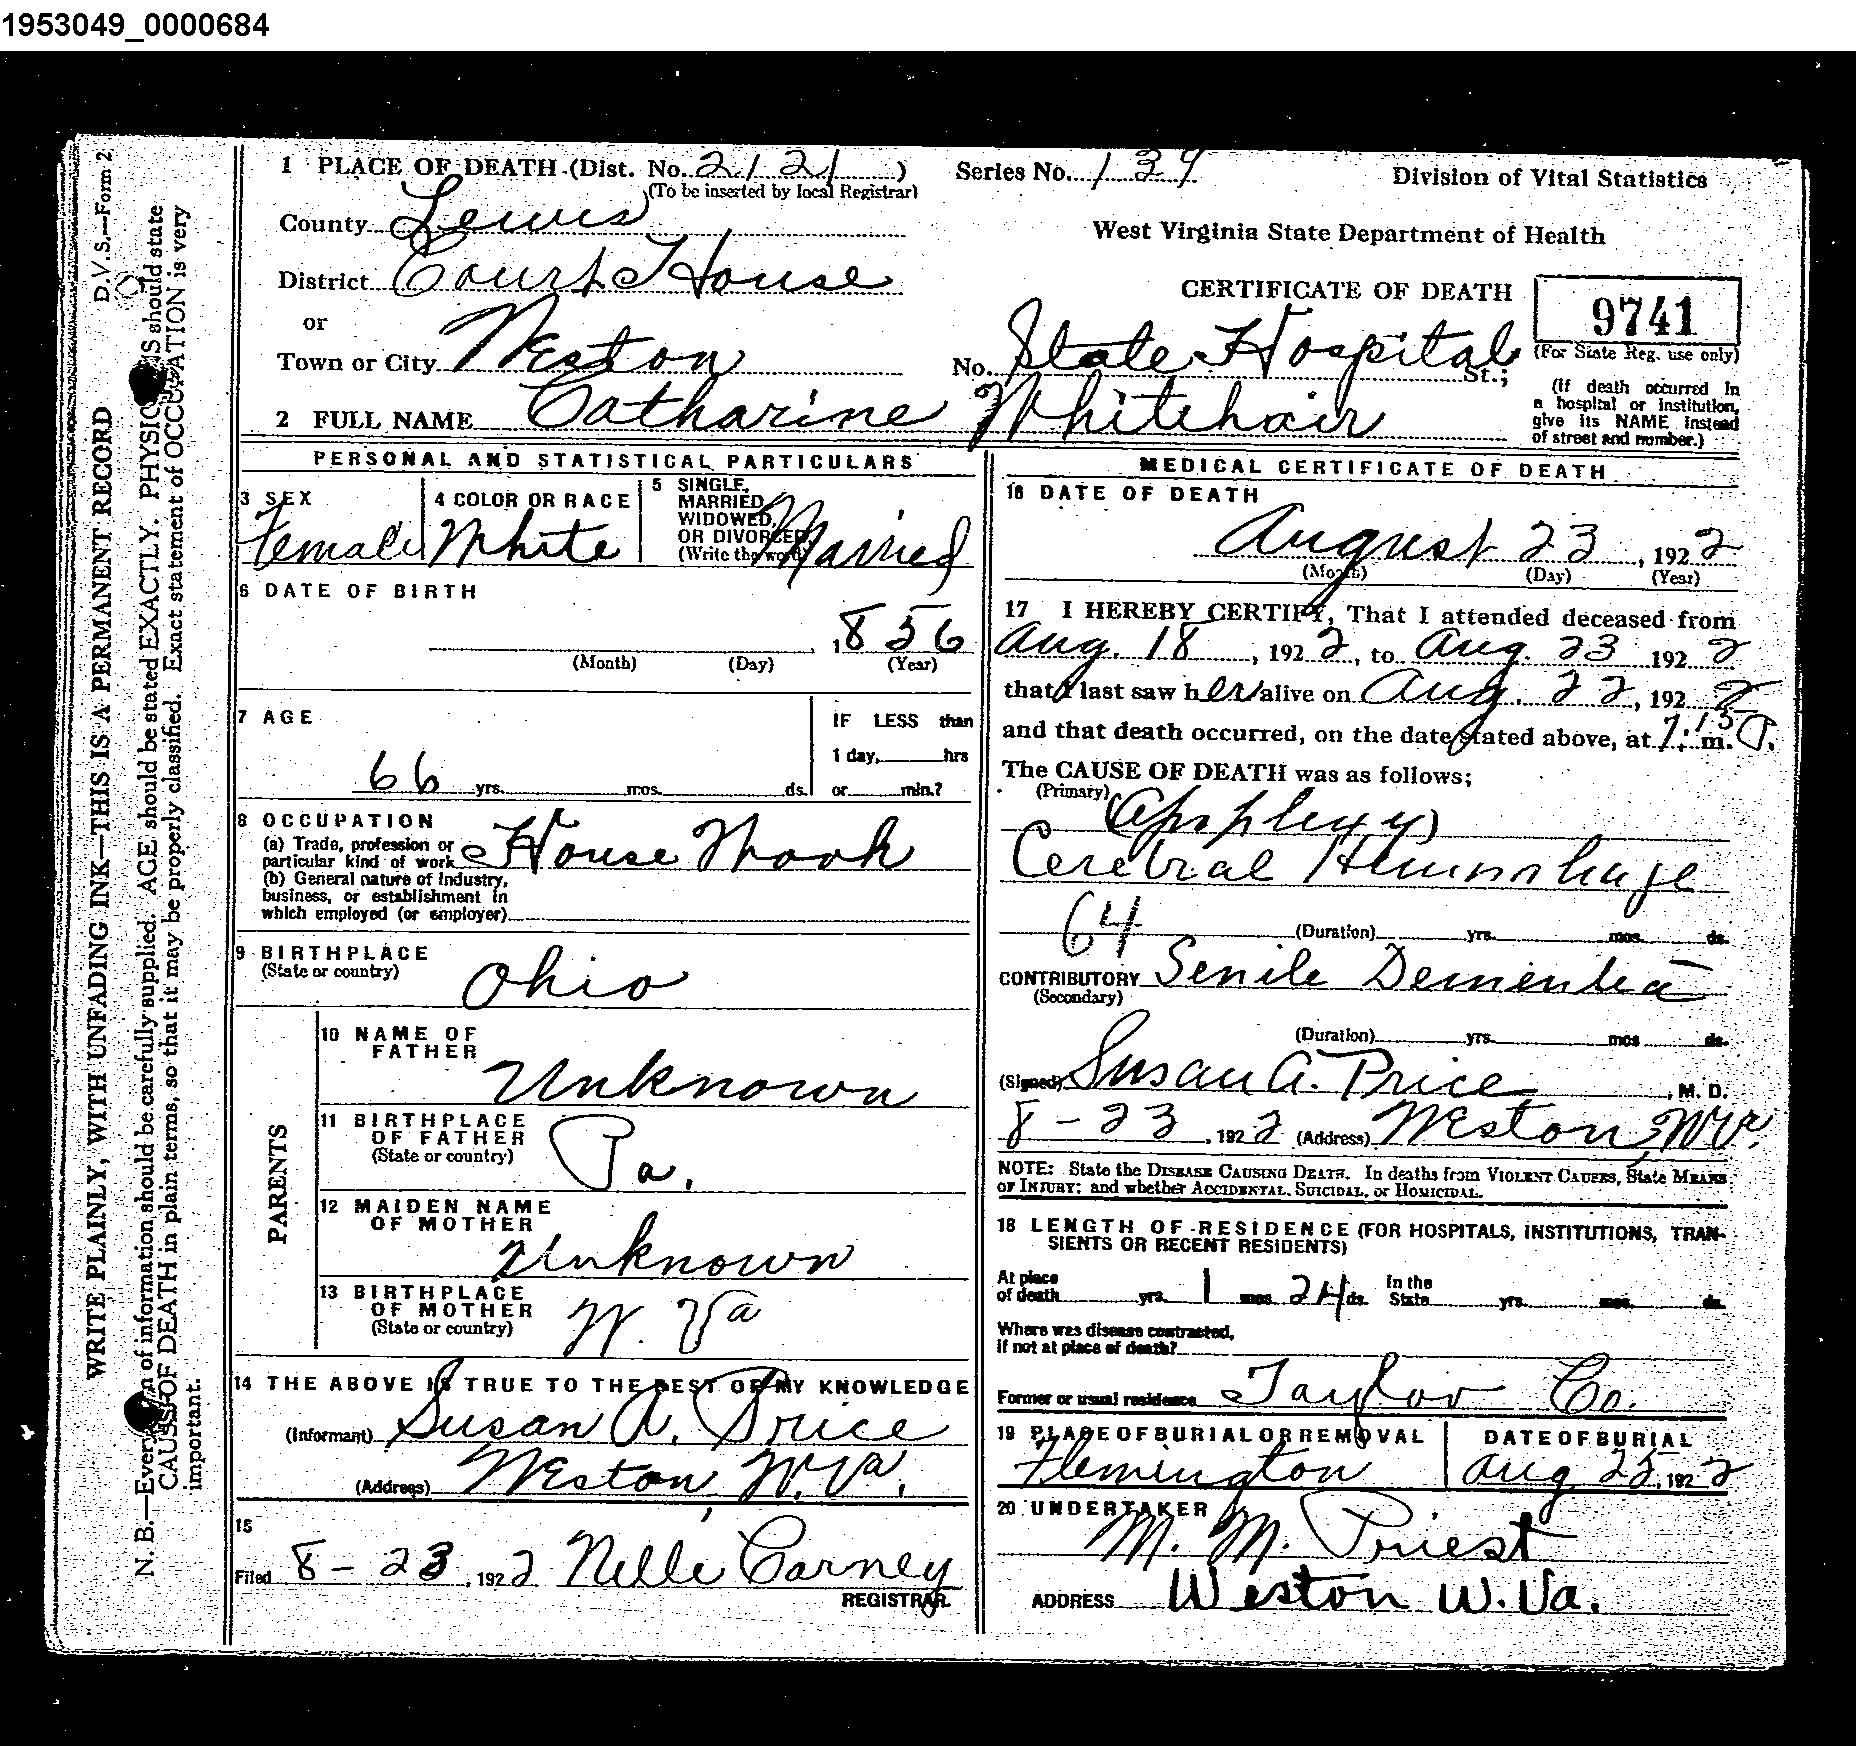 1953049_0000684
D.V.S.—Form 2
WRITE PLAINLY, WITH UNFADING INK—THIS IS A PERMANENT RECORD
N. B.—Every item of information should be carefully supplied. AGE should be stated EXACTLY. PHYSICIANS should state
CAUSE OF DEATH in plain terms, so that it may be properly classified. Exact statement of OCCUPATION is very
important.
1 PLACE OF DEATH (Dist. No. 2121 )
(To be inserted by local Registrar)
Series No. 139
Division of Vital Statistics
County Lewis
West Virginia State Department of Health
District Court House
CERTIFICATE OF DEATH
9741
(For State Reg. use only)
or
Town or City Weston
No. State Hospital St.;
(If death occurred in
a hospital or institution,
give its NAME instead
of street and number.)
2 FULL NAME Catharine Whitehair
PERSONAL AND STATISTICAL PARTICULARS
3 SEX
Female
4 COLOR OR RACE
White
5 SINGLE,
MARRIED,
WIDOWED,
OR DIVORCED
(Write the word)
Married
6 DATE OF BIRTH
, 1856
(Month) (Day) (Year)
7 AGE
66 yrs. mos. ds.
IF LESS than
1 day, hrs
or min.?
8 OCCUPATION
(a) Trade, profession or
particular kind of work House Work
(b) General nature of Industry,
business, or establishment in
which employed (or employer)
9 BIRTHPLACE
(State or country)
Ohio
PARENTS
10 NAME OF
FATHER
Unknown
11 BIRTHPLACE
OF FATHER
(State or country)
Pa.
12 MAIDEN NAME
OF MOTHER
Unknown
13 BIRTHPLACE
OF MOTHER
(State or country)
W. Va
14 THE ABOVE IS TRUE TO THE BEST OF MY KNOWLEDGE
(Informant) Susan A. Price
(Address) Weston, W. Va.
15
Filed 8-23, 1922 Nelle Carney
REGISTRAR.
MEDICAL CERTIFICATE OF DEATH
16 DATE OF DEATH
August 23, 1922
(Month) (Day) (Year)
17 I HEREBY CERTIFY, That I attended deceased from
Aug. 18, 1922, to Aug. 23 1922
that I last saw her alive on Aug. 22, 1922
and that death occurred, on the date stated above, at 7:15 m.
The CAUSE OF DEATH was as follows;
(Primary)
(Apoplexy)
Cerebral Hemorrhage
64
(Duration) yrs. mos. ds.
CONTRIBUTORY Senile Dementia
(Secondary)
(Duration) yrs. mos. ds.
(Signed) Susan A. Price, M. D.
8-23, 1922 (Address) Weston, W Va.
NOTE: State the DISEASE CAUSING DEATH. In deaths from VIOLENT CAUSES, State MEANS
OF INJURY; and whether ACCIDENTAL, SUICIDAL, or HOMICIDAL.
18 LENGTH OF RESIDENCE (FOR HOSPITALS, INSTITUTIONS, TRAN-
SIENTS OR RECENT RESIDENTS)
At place
of death yrs. 1 mos. 24 ds.
In the
State yrs. mos. ds.
Where was disease contracted,
if not at place of death?
Former or usual residence Taylor Co.
19 PLACE OF BURIAL OR REMOVAL
Flemington
DATE OF BURIAL
Aug 25, 1922
20 UNDERTAKER
M. M. Priest
ADDRESS Weston W. Va.